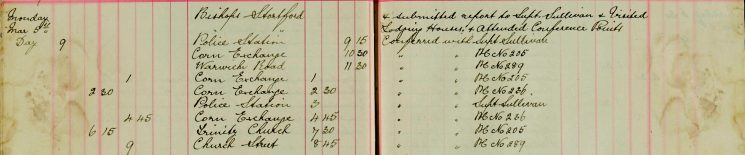 Monday Bishops Stortford & submitted report to Supt Sullivan & Visited
Mar 5th Lodging Houses, & Attended Conference Points
Day 9 Police Station 9 15 Conferred with Supt Sullivan
Corn Exchange 10 30 " " P.C No 205
Warwick Road 11 30 " " P.C No 289
1 Corn Exchange 1 " " P.C No 205
2 30 Corn Exchange 2 30 " " P.C No 236.
Police Station 3 " " Supt Sullivan
4 45 Corn Exchange 4 45 " " P.C No 236
6 15 Trinity Church 7 30 " " P.C No 205
9 Church Street 8 45 " " P.C No 289